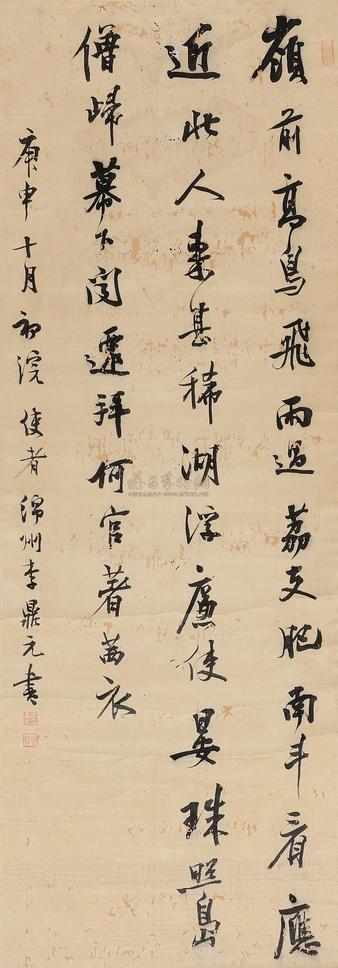 嶺前高鳥飛雨過荔支肥南斗看應
近北人來甚稀湖浮廉使晏珠照島
僧歸幕下聞遷拜何官著茜衣
庚申十月初浣使者綿州李鼎元書